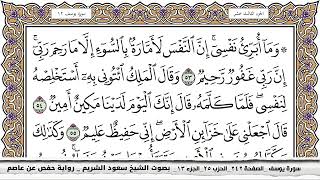 الجزء الثالث عشر
سورة يوسف ١٢
۞ وَمَا أُبَرِّئُ نَفْسِي إِنَّ النَّفْسَ لَأَمَّارَةٌ بِالسُّوءِ إِلَّا مَا رَحِمَ رَبِّي
إِنَّ رَبِّي غَفُورٌ رَحِيمٌ ٥٣ وَقَالَ الْمَلِكُ ائْتُونِي بِهِ أَسْتَخْلِصْهُ
لِنَفْسِي فَلَمَّا كَلَّمَهُ قَالَ إِنَّكَ الْيَوْمَ لَدَيْنَا مَكِينٌ أَمِينٌ ٥٤
قَالَ اجْعَلْنِي عَلَى خَزَائِنِ الْأَرْضِ إِنِّي حَفِيظٌ عَلِيمٌ ٥٥ وَكَذَلِكَ
سورة يوسف _ الصفحة ٢٤٢ _ الحزب ٢٥ _ الجزء ١٣ _ بصوت الشيخ سعود الشريم _ رواية حفص عن عاصم